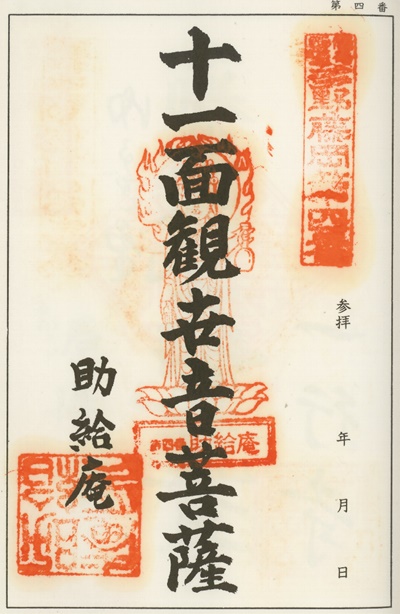 第四番
参拝
年 月 日
十一面観世音菩薩
第四番 助給庵
助給庵